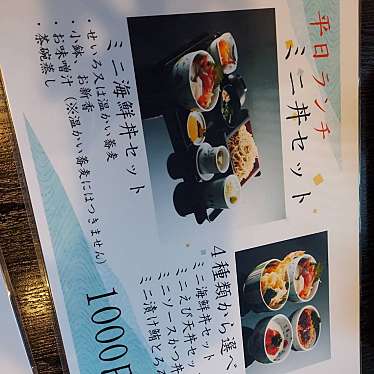 平日ランチ
ミニ丼セット
ミニ海鮮丼セット
・せいろ又は温かい蕎麦
・小鉢、お新香
・お味噌汁（※温かい蕎麦にはつきません）
・茶碗蒸し
4種類から選べ
ミニ海鮮丼セット
ミニえび天丼セッ
ミニソースかつ丼
ミニ漬け鮪とろ
1000円